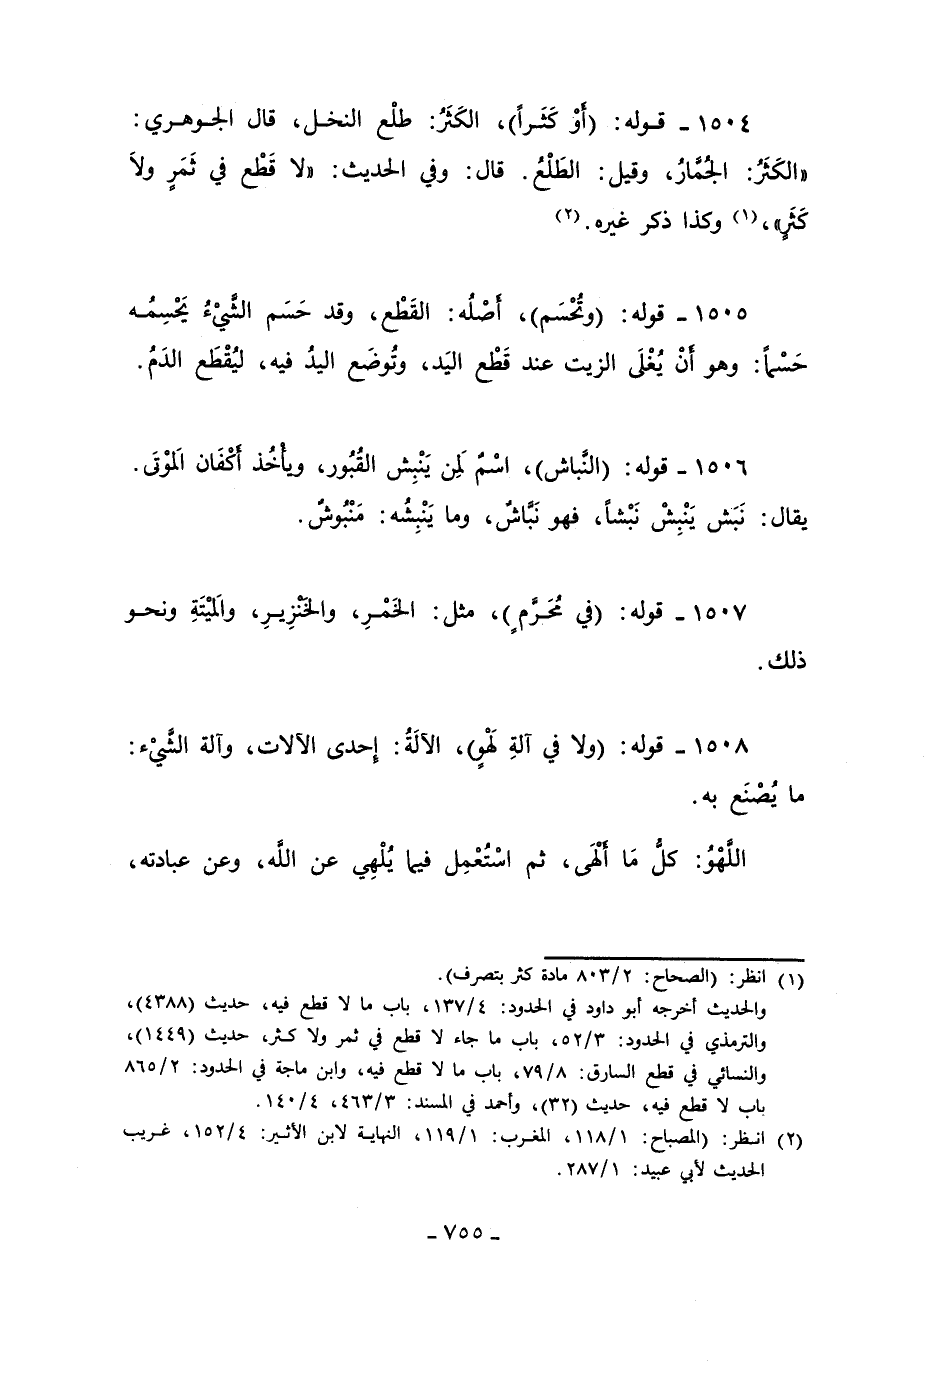 ١٥٠٤ ـ قـوله: (أَوْ كَثَـراً)، الكَثَرُ: طلْع النخـل، قال الجـوهـري:
«الكَثَرُ: الجُمَّارُ، وقيل: الطَلْعُ. قال: وفي الحديث: «لا قَطْع في ثَمَرٍ ولاَ
كَثَرٍ»،(١) وكذا ذكر غيره.(٢)
١٥٠٥ ـ قوله: (وتُحْسَم)، أَصْلُه: القَطْع، وقد حَسَم الشَّيْءُ يَحْسِمُـه
حَسْماً: وهو أَنْ يُغْلَى الزيت عند قَطْع اليَد، وتُوضَع اليدُ فيه، ليُقْطَع الدَمُ.
١٥٠٦ ـ قوله: (النَّباش)، اسْمٌ لَمِن يَنْبِش القُبُور، ويأْخُذ أَكْفَان المَوْتَى.
يقال: نَبَش يَنْبِشْ نَبْشاً، فهو نَبَّاشٌ، وما يَنْبِشُه: مَنْبُوشٌ.
١٥٠٧ ـ قوله: (في مُحَـرَّمٍ)، مثل: الخَمْـرِ، والخَنْزِيـرِ، والمَيْتَةِ ونحـو
ذلك.
١٥٠٨ ـ قوله: (ولا في آلةِ لَهْوٍ)، الآلَةُ: إحدى الآلات، وآلة الشَّيْء:
ما يُصْنَع به.
اللَّهْوُ: كلُّ مَا أَلْهَى، ثم اسْتُعْمِل فيما يُلْهِي عن اللَّه، وعن عبادته،
(١) انظر: (الصحاح: ٨٠٣/٢ مادة كثر بتصرف).
والحديث أخرجه أبو داود في الحدود: ١٣٧/٤، باب ما لا قطع فيه، حديث (٤٣٨٨)،
والترمذي في الحدود: ٥٢/٣، باب ما جاء لا قطع في ثمر ولا كثر، حديث (١٤٤٩)،
والنسائي في قطع السارق: ٧٩/٨، باب ما لا قطع فيه، وابن ماجة في الحدود: ٨٦٥/٢
باب لا قطع فيه، حديث (٣٢)، وأحمد في المسند: ٤٦٣/٣، ١٤٠/٤.
(٢) انـظر: (المصباح: ١١٨/١، المغـرب: ١١٩/١، النهايـة لابن الأثـير: ١٥٢/٤، غـريب
الحديث لأبي عبيد: ٢٨٧/١.
ـ ٧٥٥ ـ